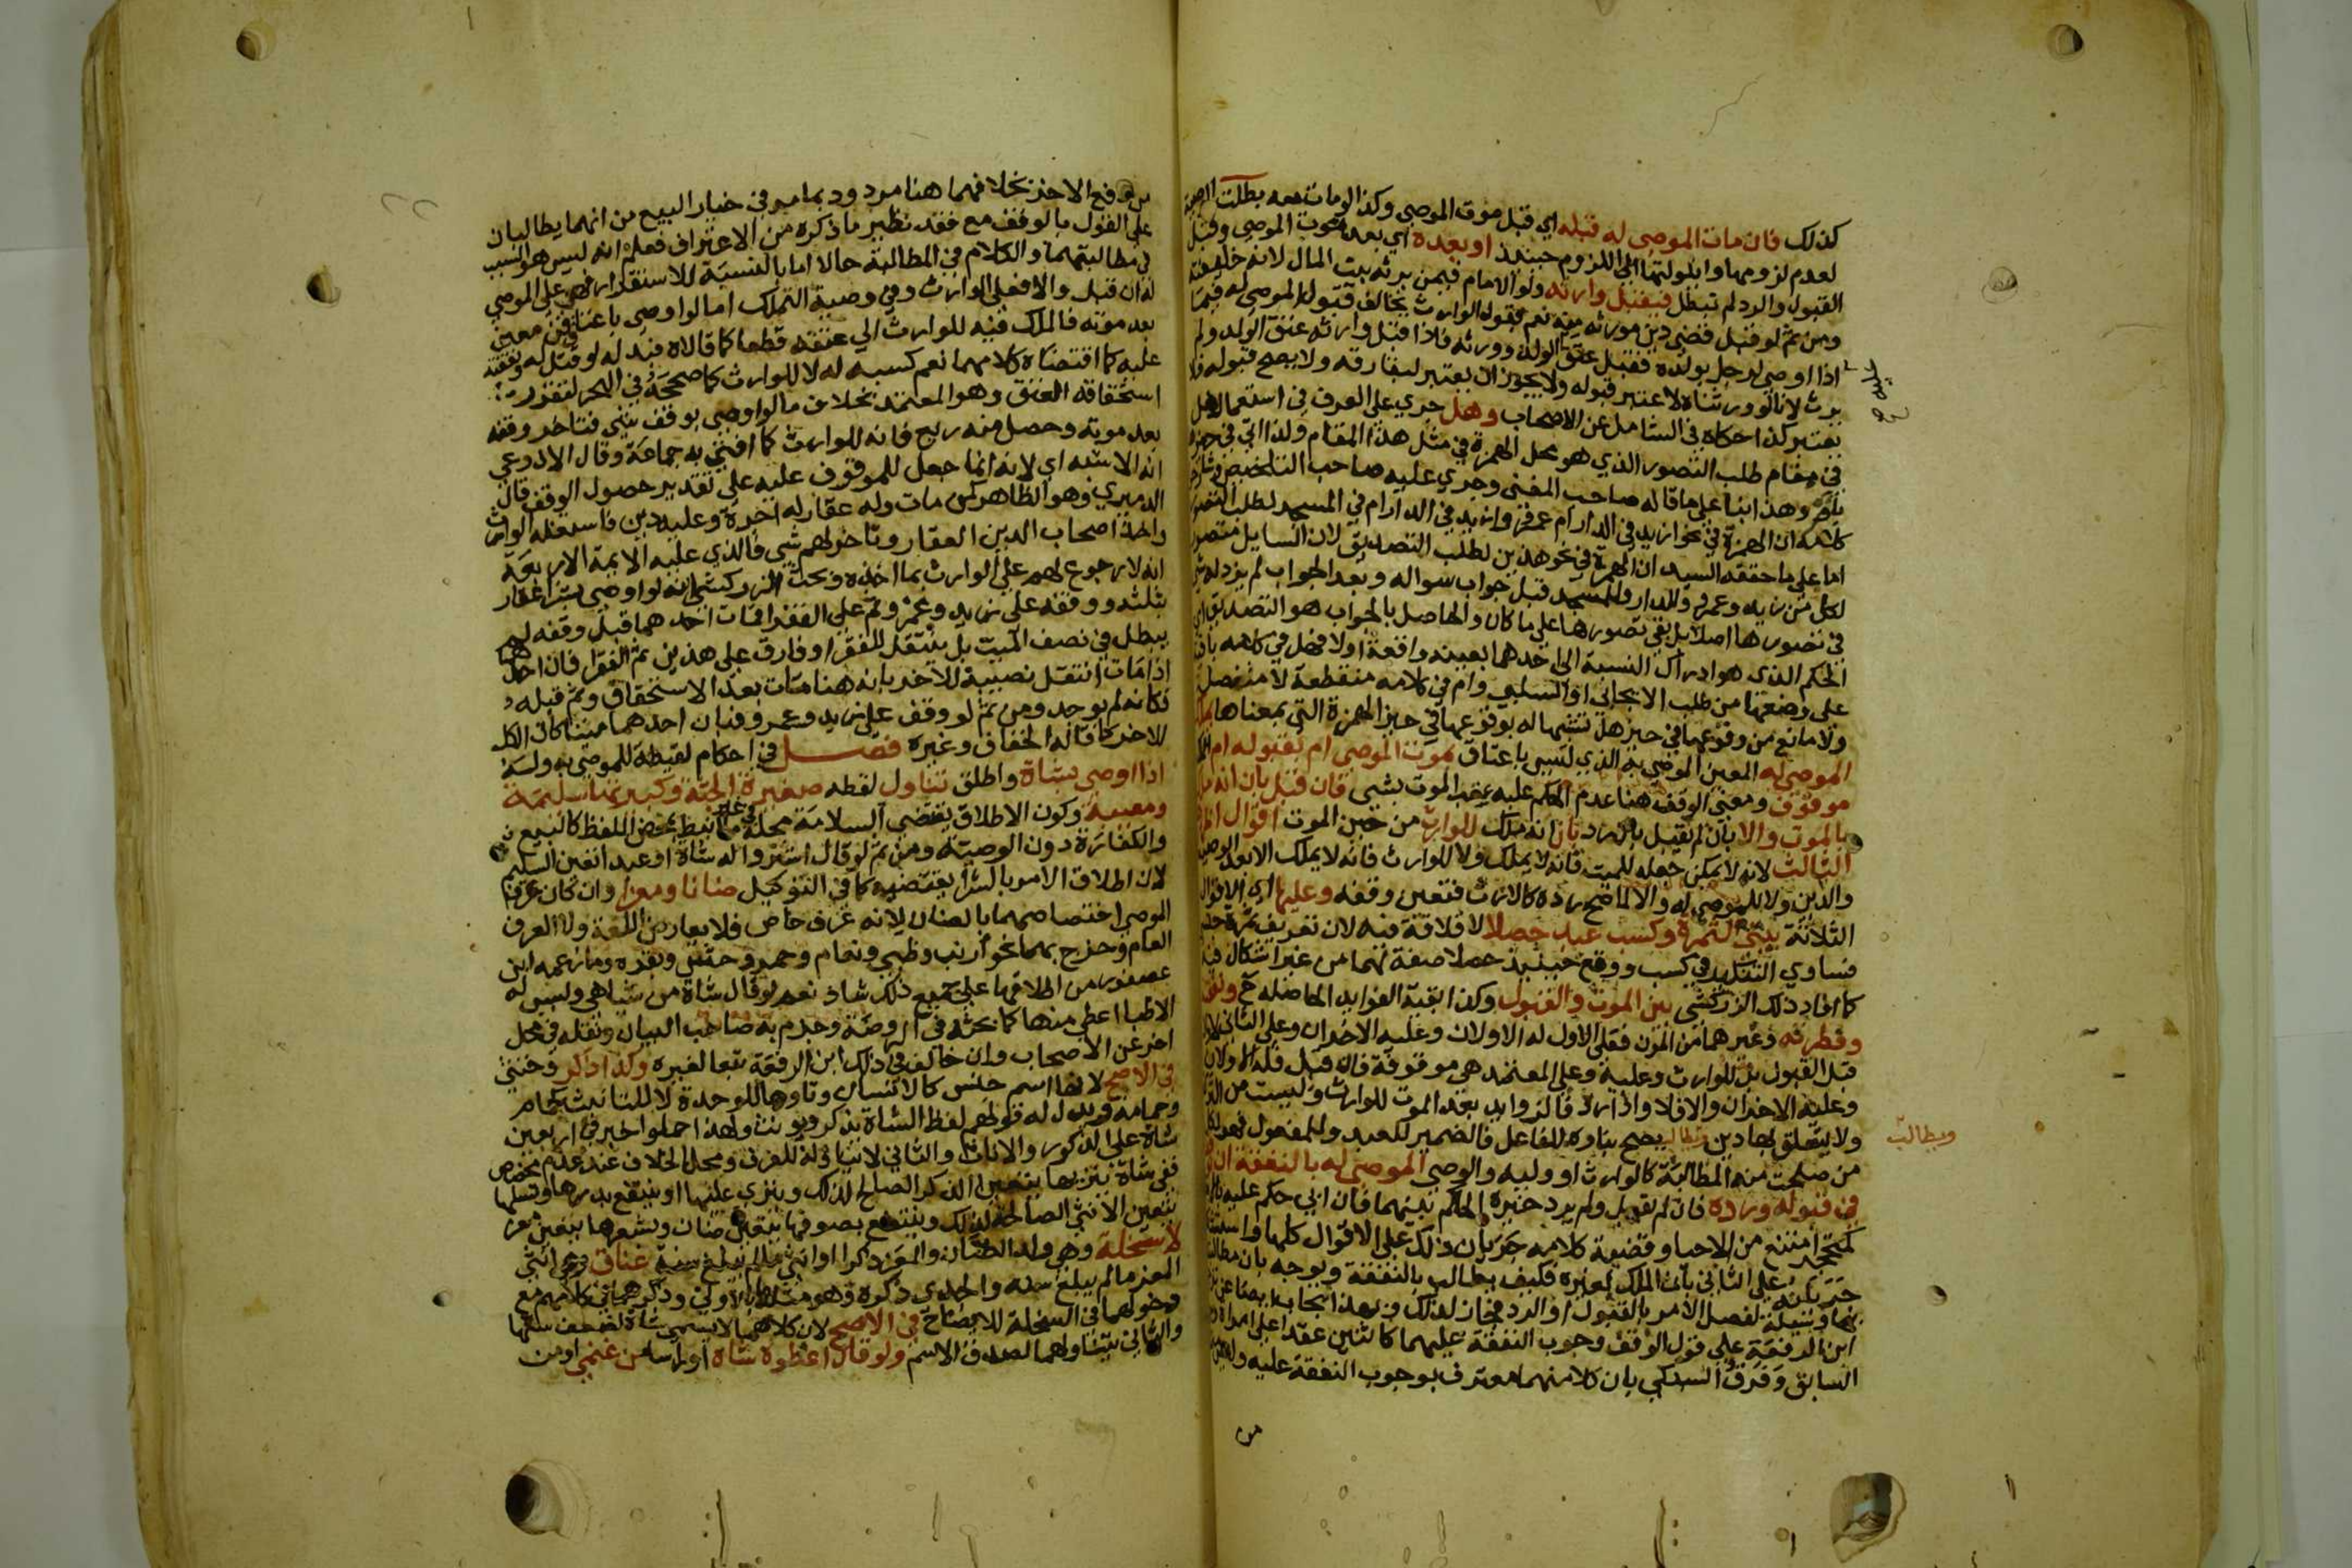 كذلك فان مات الموصى له قبله اي قبل موت الموصي وكذا لو مات معه بطلت الوصية
لعدم لزومها وايلولتها الى اللزوم حينئذ او بعده اي بعد موت الموصي وقبل
القبول والرد لم تبطل فيقبل وارثه ولو الامام فيمن يرثه بيت المال لانه خليفته
ومن ثم لو قبل قضي دين مورثه منه نعم قبول الوارث يخالف قبول الموصى له فيما
اذا اوصى لرجل بولده فقبل عتق الولد وورثه فاذا قبل وارثه عتق الولد ولم
يرث لانا لو ورثناه لاعتبر قبوله ولا يجوز ان يعتبر لبقا رقه ولا يصح قبوله فلا
يعتبر كذا حكاه في الشامل عن الاصحاب وهل جري على العرف في استعمال هل
في مقام طلب التصور الذي هو محل الهمزة في مثل هذا المقام ولذا اتى في حيزه
بام وهذا بنا على ما قاله صاحب المغني وجرى عليه صاحب التلخيص
كلامه ان الهمزة في نحو ازيد في الدار ام عمرو وازيد في الدار ام في المسجد لطلب التصور
اما على ما حققه السيد ان الهمزة في نحو هذين لطلب التصديق لان السايل متصور
لكل من زيد وعمرو والدار والمسجد قبل جواب سواله وبعد الجواب لم يزد له
في تصورها اصلا بل بقي تصورها على ما كان والحاصل بالجواب هو التصديق اي
الحكم الذي هو ادراك النسبة الى احدهما بعينه واقعة او لا فهل في كلامه باقية
على وضعها من طلب الايجابي او السلبي وام في كلامه منقطعة لا متصلة
ولا مانع من وقوعها في حيز هل تشبيها له بوقوعها في حيز الهمزة التي بمعناها
الموصى له المعين الموصى به الذي ليس باعتاق بموت الموصي ام بقبوله ام
موقوف ومعنى الوقف هنا عدم الحكم عليه بعقب الموت بشي فان قبل بان انه
بالموت والا بان لم يقبل بان رد بان انه ملك للوارث من حين الموت اقوال
الثالث لانه لا يمكن جعله للميت فانه لا يملك ولا للوارث فانه لا يملك الا بعد الوصية
والدين ولا للموصى له والا لما صح رده كالارث فتعين وقفه وعليها اي الاقوال
الثلاثة تبنى الثمرة وكسب عبد حصلا لا قلاقة فيه لان تعريف ثمرة
فساوى التنكير في كسب ووقع حينئذ حصلا صفة لهما من غير اشكال فيه
كما افاد ذلك الزركشي بين الموت والقبول وكذا بقية الفوايد الحاصلة ح ونفقته
وفطرته وغيرهما من المؤن فعلى الاول له الاولان وعليه الاخران وعلى الثاني لا
قبل القبول بل للوارث وعليه وعلى المعتمد هي موقوفة فان قبل فله الاولان
وعليه الاخران والا فلا واذا رد فالزوايد بعد الموت للوارث وليست من
ولا يتعلق بها دين ويطالب يصح بناوه للفاعل فالضمير للعبد وللمفعول فهو لكل
من صلحت منه المطالبة كالوارث او وليه والوصي الموصى له بالنفقة ان
في قبوله ورده فان لم يقبل ولم يرد خيره الحاكم بينهما فان ابى حكم عليه
كمتحجر امتنع من الاحيا وقضية كلامه جريان ذلك على الاقوال كلها
جريانه على الثاني بان الملك لغيره فكيف يطالب بالنفقة ويوجه بان
نها وسيلة لفصل الامر بالقبول او الرد فجاز لذلك وبهذا يجاب
ابن الرفعة على قول الوقف وجوب النفقة عليهما كاثنين عقدا على امراة
السابق وفرق السبكي بان كلا منهما معترف بوجوب النفقة عليه
من
ويطالب
بل وقع الاخذ بخلافهما هنا مردود بما مر في خيار البيع من انهما يطالبان
على القول بالوقف مع فقد نظير ما ذكره من الاعتراف فعلم انه ليس هو السبب
في مطالبتهما والكلام في المطالبة حالا اما بالنسبة للاستقرار فهي على الموصى
له ان قبل والا فعلى الوارث وفي وصية التمليك اما لو اوصى باعتاق قن معين
بعد موته فالملك فيه للوارث الى عتقه قطعا كما قالاه فبدله لو قتل له ونفقته
عليه كما اقتضاه كلامهما نعم كسبه له لا للوارث كما صححه في البحر لتقرر
استحقاقه العتق وهو المعتمد بخلاف ما لو اوصى بوقف شي فتاخر وقفه
بعد موته وحصل منه ريع فانه للوارث كما افتى به جماعة وقال الاذرعي
انه الاشبه اي لانه انما جعل للموقوف عليه على تقدير حصول الوقف قال
الدميري وهو الظاهر كمن مات وله عقار له اجرة وعليه دين فاستغله الوارث
واخذ اصحاب الدين العقار وتاخر لهم شي فالذي عليه الايمة الاربعة
انه لا رجوع لهم على الوارث بما اخذه وبحث الزركشي انه لو اوصى بشرا عقار
بثلثه ووقفه على زيد وعمرو ثم على الفقرا فمات احدهما قبل وقفه لم
يبطل في نصف الميت بل ينتقل للفقرا وفارق على هذين ثم الفقرا فان احدهما
اذا مات انتقل نصيبه للاخر بانه هنا مات بعد الاستحقاق وثم قبله
فكانه لم يوجد ومن ثم لو وقف على زيد وعمرو فبان احدهما ميتا كان الكل
للاخر كما قاله الخفاف وغيره فصل في احكام لفظية للموصى به وله
اذا اوصى بشاة واطلق تناول لفظه صغيرة الجثة وكبيرتها سليمة
ومعيبة وكون الاطلاق يقتضي السلامة محله فيما نيط بمحض اللفظ كالبيع
والكفارة دون الوصية ومن ثم لو قال اشتروا له شاة او عبدا تعين السليم
لان اطلاق الامر بالشرا يقتضيه كما في التوكيل ضانا ومعزا وان كان عرف
الموصي اختصاصهما بالضان لانه عرف خاص فلا يعارض اللغة ولا العرف
العام وخرج بهما نحو ارنب وظبي ونعام وحمر وحش وبقره وما زعمه ابن
عصفور من اطلاقها على جميع ذلك شاذ نعم لو قال شاة من شياهي وليس له
الا ظبا اعطي منها كما بحثه في الروضة وجزم به صاحب البيان ونقله في محل
اخر عن الاصحاب وان خالف في ذلك ابن الرفعة تبعا لغيره وكذا ذكر وخنثى
في الاصح لانها اسم جنس كالانسان وتاوها للوحدة لا للتانيث كحمام
وحمامة ويدل له قولهم لفظ الشاة يذكر ويونث ولهذا حملوا خبر في اربعين
شاة شاة على الذكور والاناث والثاني لا يتناوله للعرف ومحل الخلاف عند عدم مخصص
ففي شاة ينزيها يتعين الذكر الصالح لذلك وينزى عليها او ينتفع بدرها ونسلها
يتعين الانثى الصالحة لذلك وينتفع بصوفها يتعين ضان وبشعرها يتعين معز
لا سخلة وهي ولد الضان والمعز ذكرا او انثى ما لم يبلغ سنة وعناق وهي انثى
المعز ما لم يبلغ سنة والجدي ذكره وهو مثلها بالاولى وذكرهما في كلامهم مع
دخولهما في السخلة للايضاح في الاصح لان كلا منهما لا يسمى شاة لصغر سنها
والثاني يتناولهما لصدق الاسم ولو قال اعطوه شاة او راسا من غنمي او من